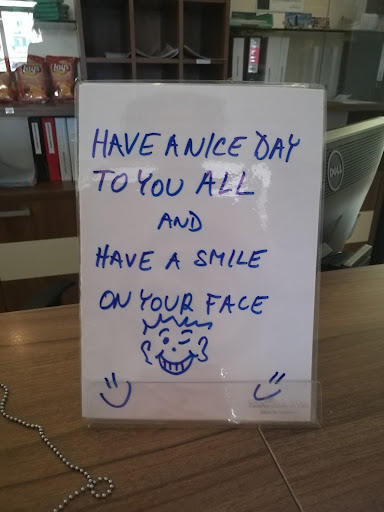 Lay's
Lay's
HAVE A NICE DAY
TO YOU ALL
AND
HAVE A SMILE
ON YOUR FACE
DELL